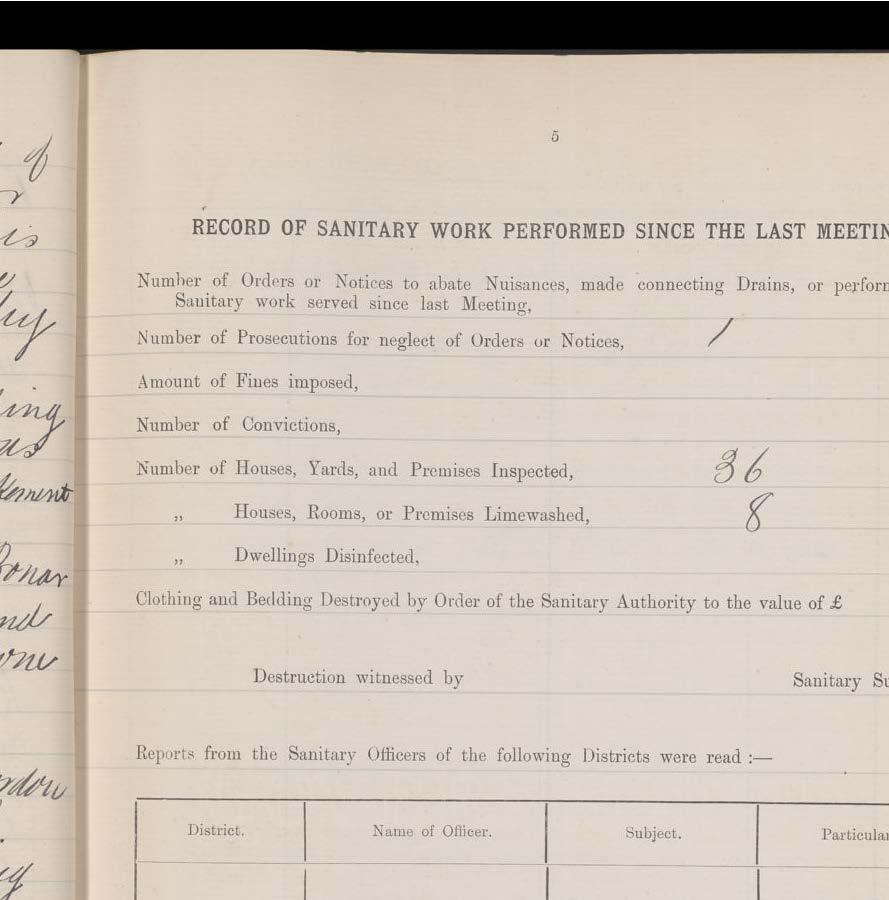 of
is
ing
as
Bonar
nd
5
RECORD OF SANITARY WORK PERFORMED SINCE THE LAST MEETIN
Number of Orders or Notices to abate Nuisances, made connecting Drains, or perform
Sanitary work served since last Meeting,
Number of Prosecutions for neglect of Orders or Notices, 1
Amount of Fines imposed,
Number of Convictions,
Number of Houses, Yards, and Premises Inspected, 36
„ Houses, Rooms, or Premises Limewashed, 8
„ Dwellings Disinfected,
Clothing and Bedding Destroyed by Order of the Sanitary Authority to the value of £
Destruction witnessed by Sanitary Su
Reports from the Sanitary Officers of the following Districts were read :—
District. Name of Officer. Subject. Particular